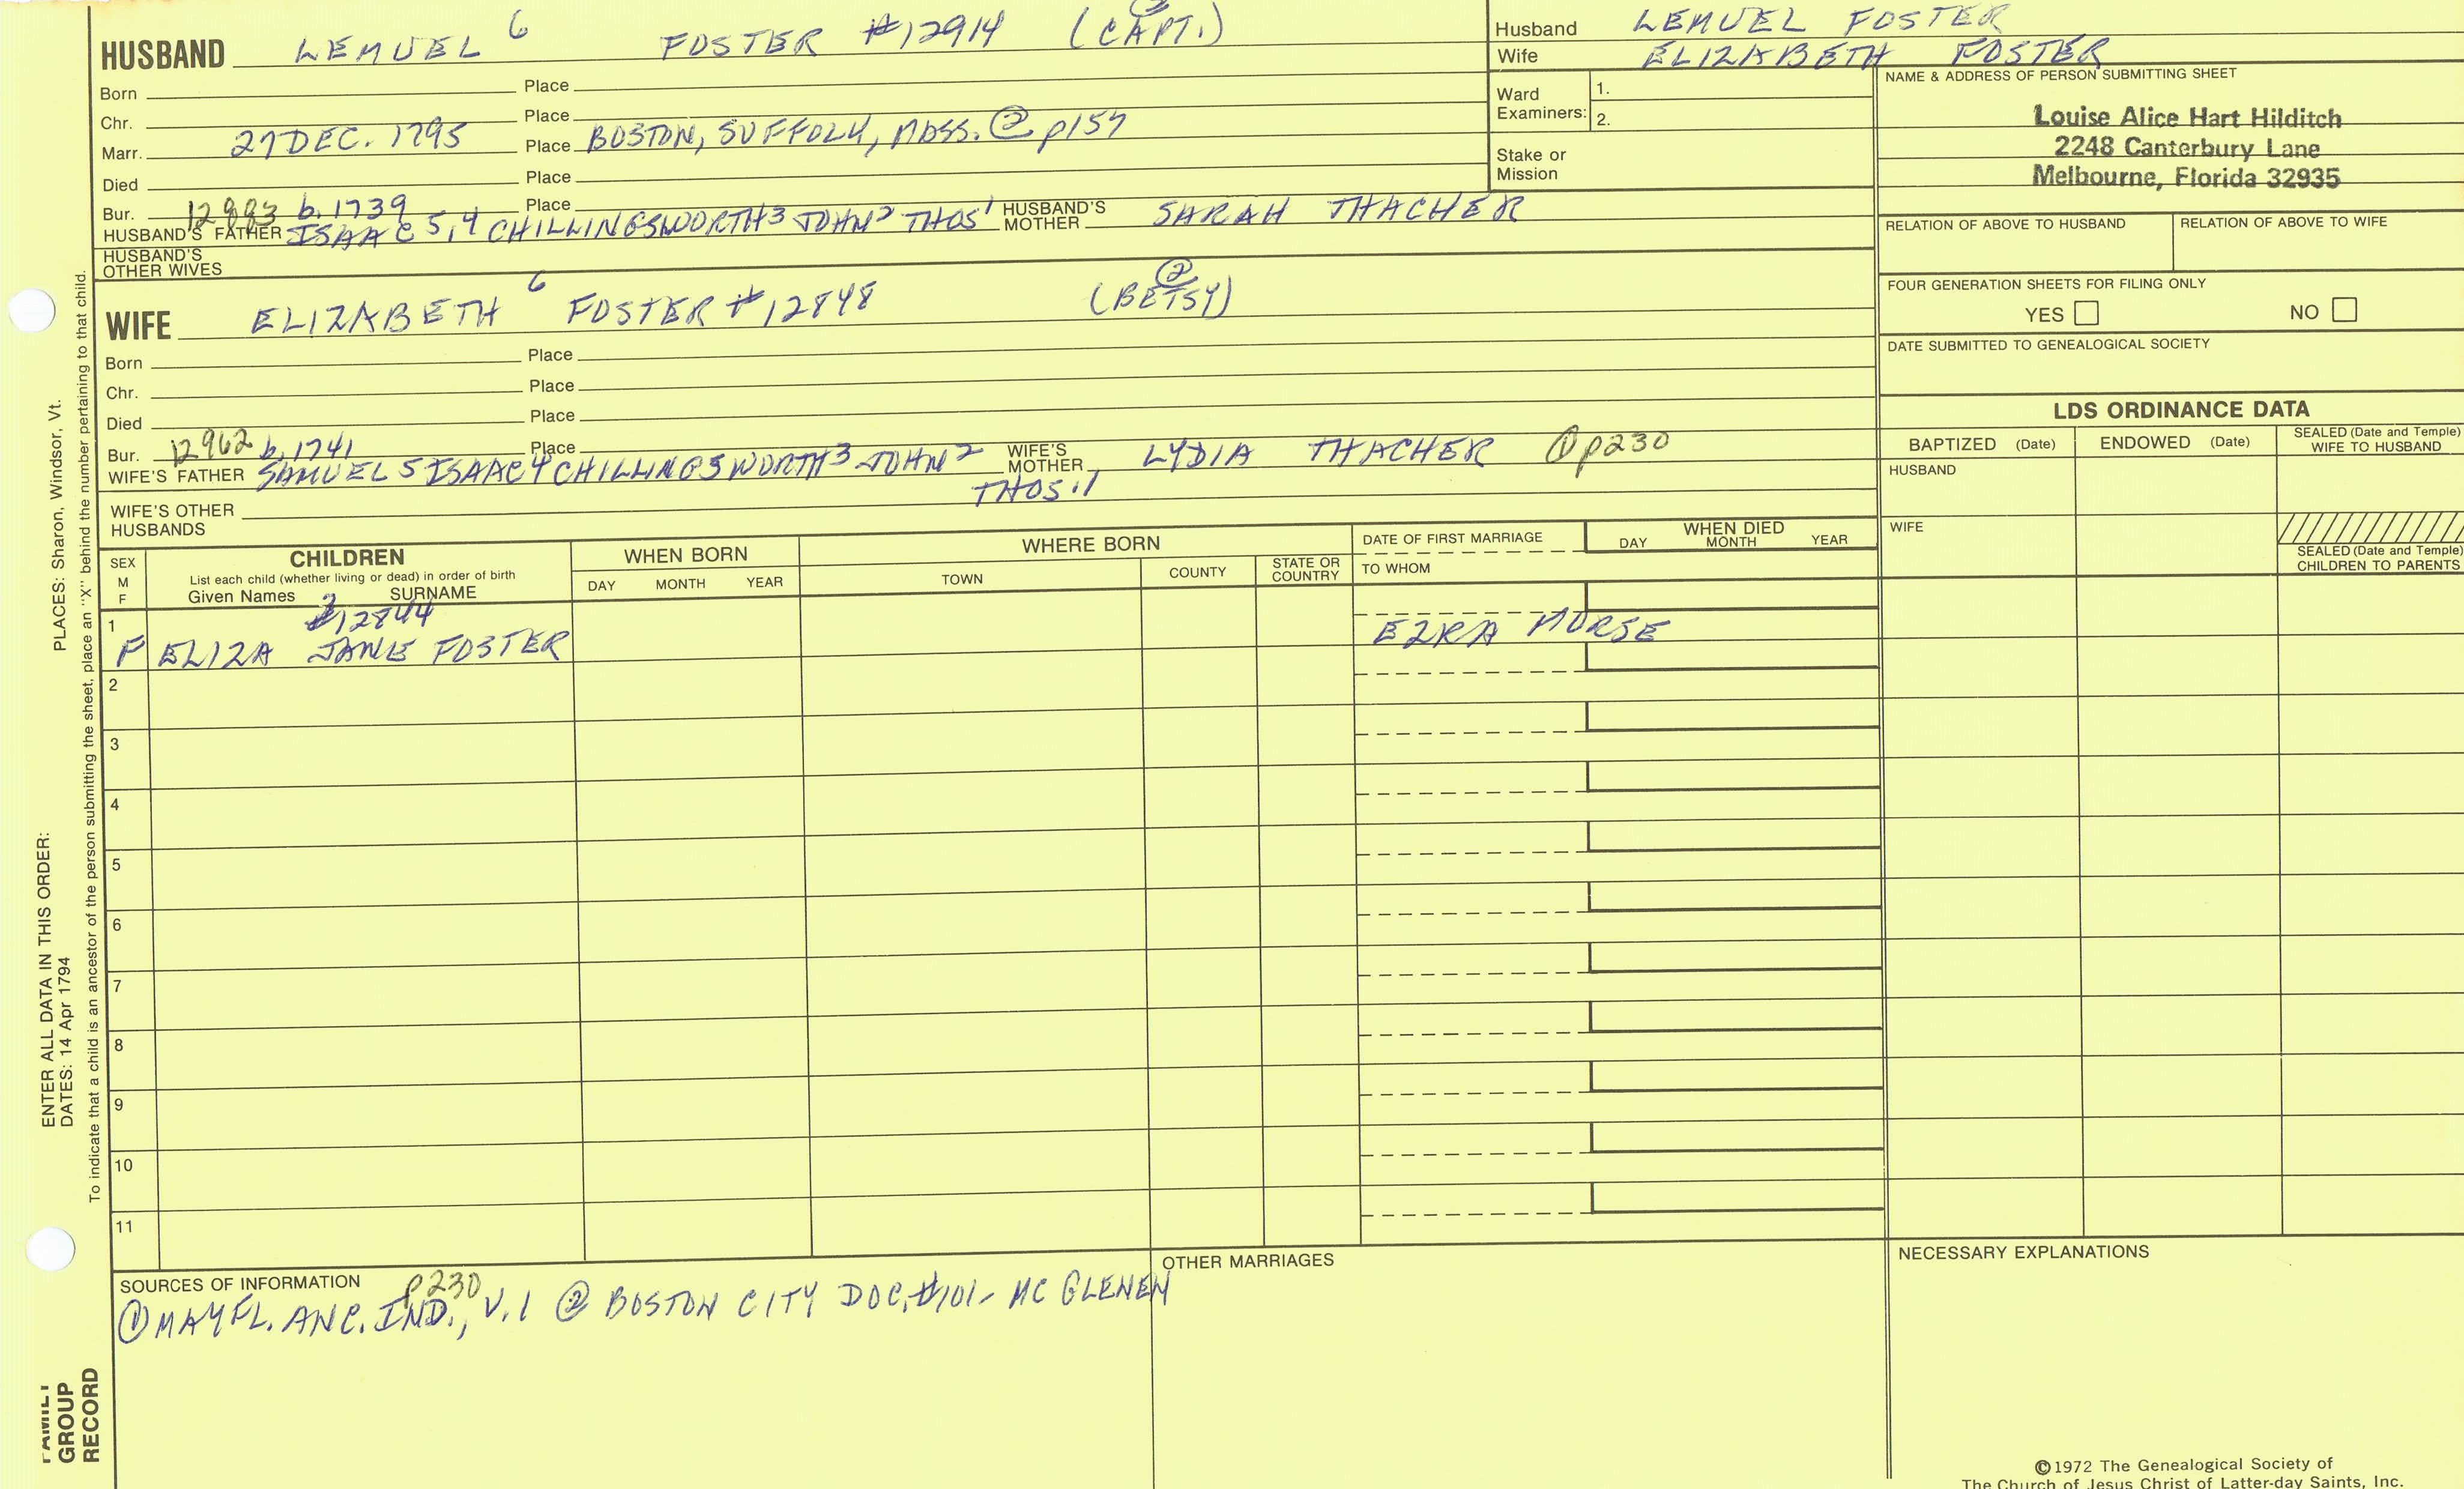 HUSBAND LEMUEL 6 FOSTER #12914 (CAPT.)
Born Place
Chr. Place
Marr. 27 DEC. 1795 Place BOSTON, SUFFOLK, MASS. ② p157
Died Place
Bur. Place
12993 b. 1739
HUSBAND'S FATHER ISAAC 5,4 CHILLINGSWORTH 3 JOHN 2 THOS 1 HUSBAND'S MOTHER SARAH THACHER
HUSBAND'S OTHER WIVES
Husband LEMUEL FOSTER
Wife ELIZABETH FOSTER
Ward Examiners: 1.
2.
Stake or Mission
NAME & ADDRESS OF PERSON SUBMITTING SHEET
Louise Alice Hart Hilditch
2248 Canterbury Lane
Melbourne, Florida 32935
RELATION OF ABOVE TO HUSBAND RELATION OF ABOVE TO WIFE
FOUR GENERATION SHEETS FOR FILING ONLY
YES NO
DATE SUBMITTED TO GENEALOGICAL SOCIETY
②
WIFE ELIZABETH 6 FOSTER #12848 (BETSY)
Born Place
Chr. Place
Died Place
Bur. Place
12962 b. 1741
WIFE'S FATHER SAMUEL 5 ISAAC 4 CHILLINGSWORTH 3 JOHN 2 THOS. 1 WIFE'S MOTHER LYDIA THACHER ① p230
WIFE'S OTHER HUSBANDS
LDS ORDINANCE DATA
BAPTIZED (Date) ENDOWED (Date) SEALED (Date and Temple) WIFE TO HUSBAND
HUSBAND
WIFE
SEALED (Date and Temple) CHILDREN TO PARENTS
SEX M F
CHILDREN
List each child (whether living or dead) in order of birth
Given Names SURNAME
WHEN BORN
DAY MONTH YEAR
WHERE BORN
TOWN COUNTY STATE OR COUNTRY
DATE OF FIRST MARRIAGE
TO WHOM
WHEN DIED
DAY MONTH YEAR
#12844
1 F ELIZA JANE FOSTER EZRA MORSE
2
3
4
5
6
7
8
9
10
11
SOURCES OF INFORMATION p230
① MAYFL. ANC. IND., V.1 ② BOSTON CITY DOC. #101- MC GLENEN
OTHER MARRIAGES
NECESSARY EXPLANATIONS
©1972 The Genealogical Society of
The Church of Jesus Christ of Latter-day Saints, Inc.
ENTER ALL DATA IN THIS ORDER:
DATES: 14 Apr 1794 PLACES: Sharon, Windsor, Vt.
To indicate that a child is an ancestor of the person submitting the sheet, place an "X" behind the number pertaining to that child.
FAMILY
GROUP
RECORD